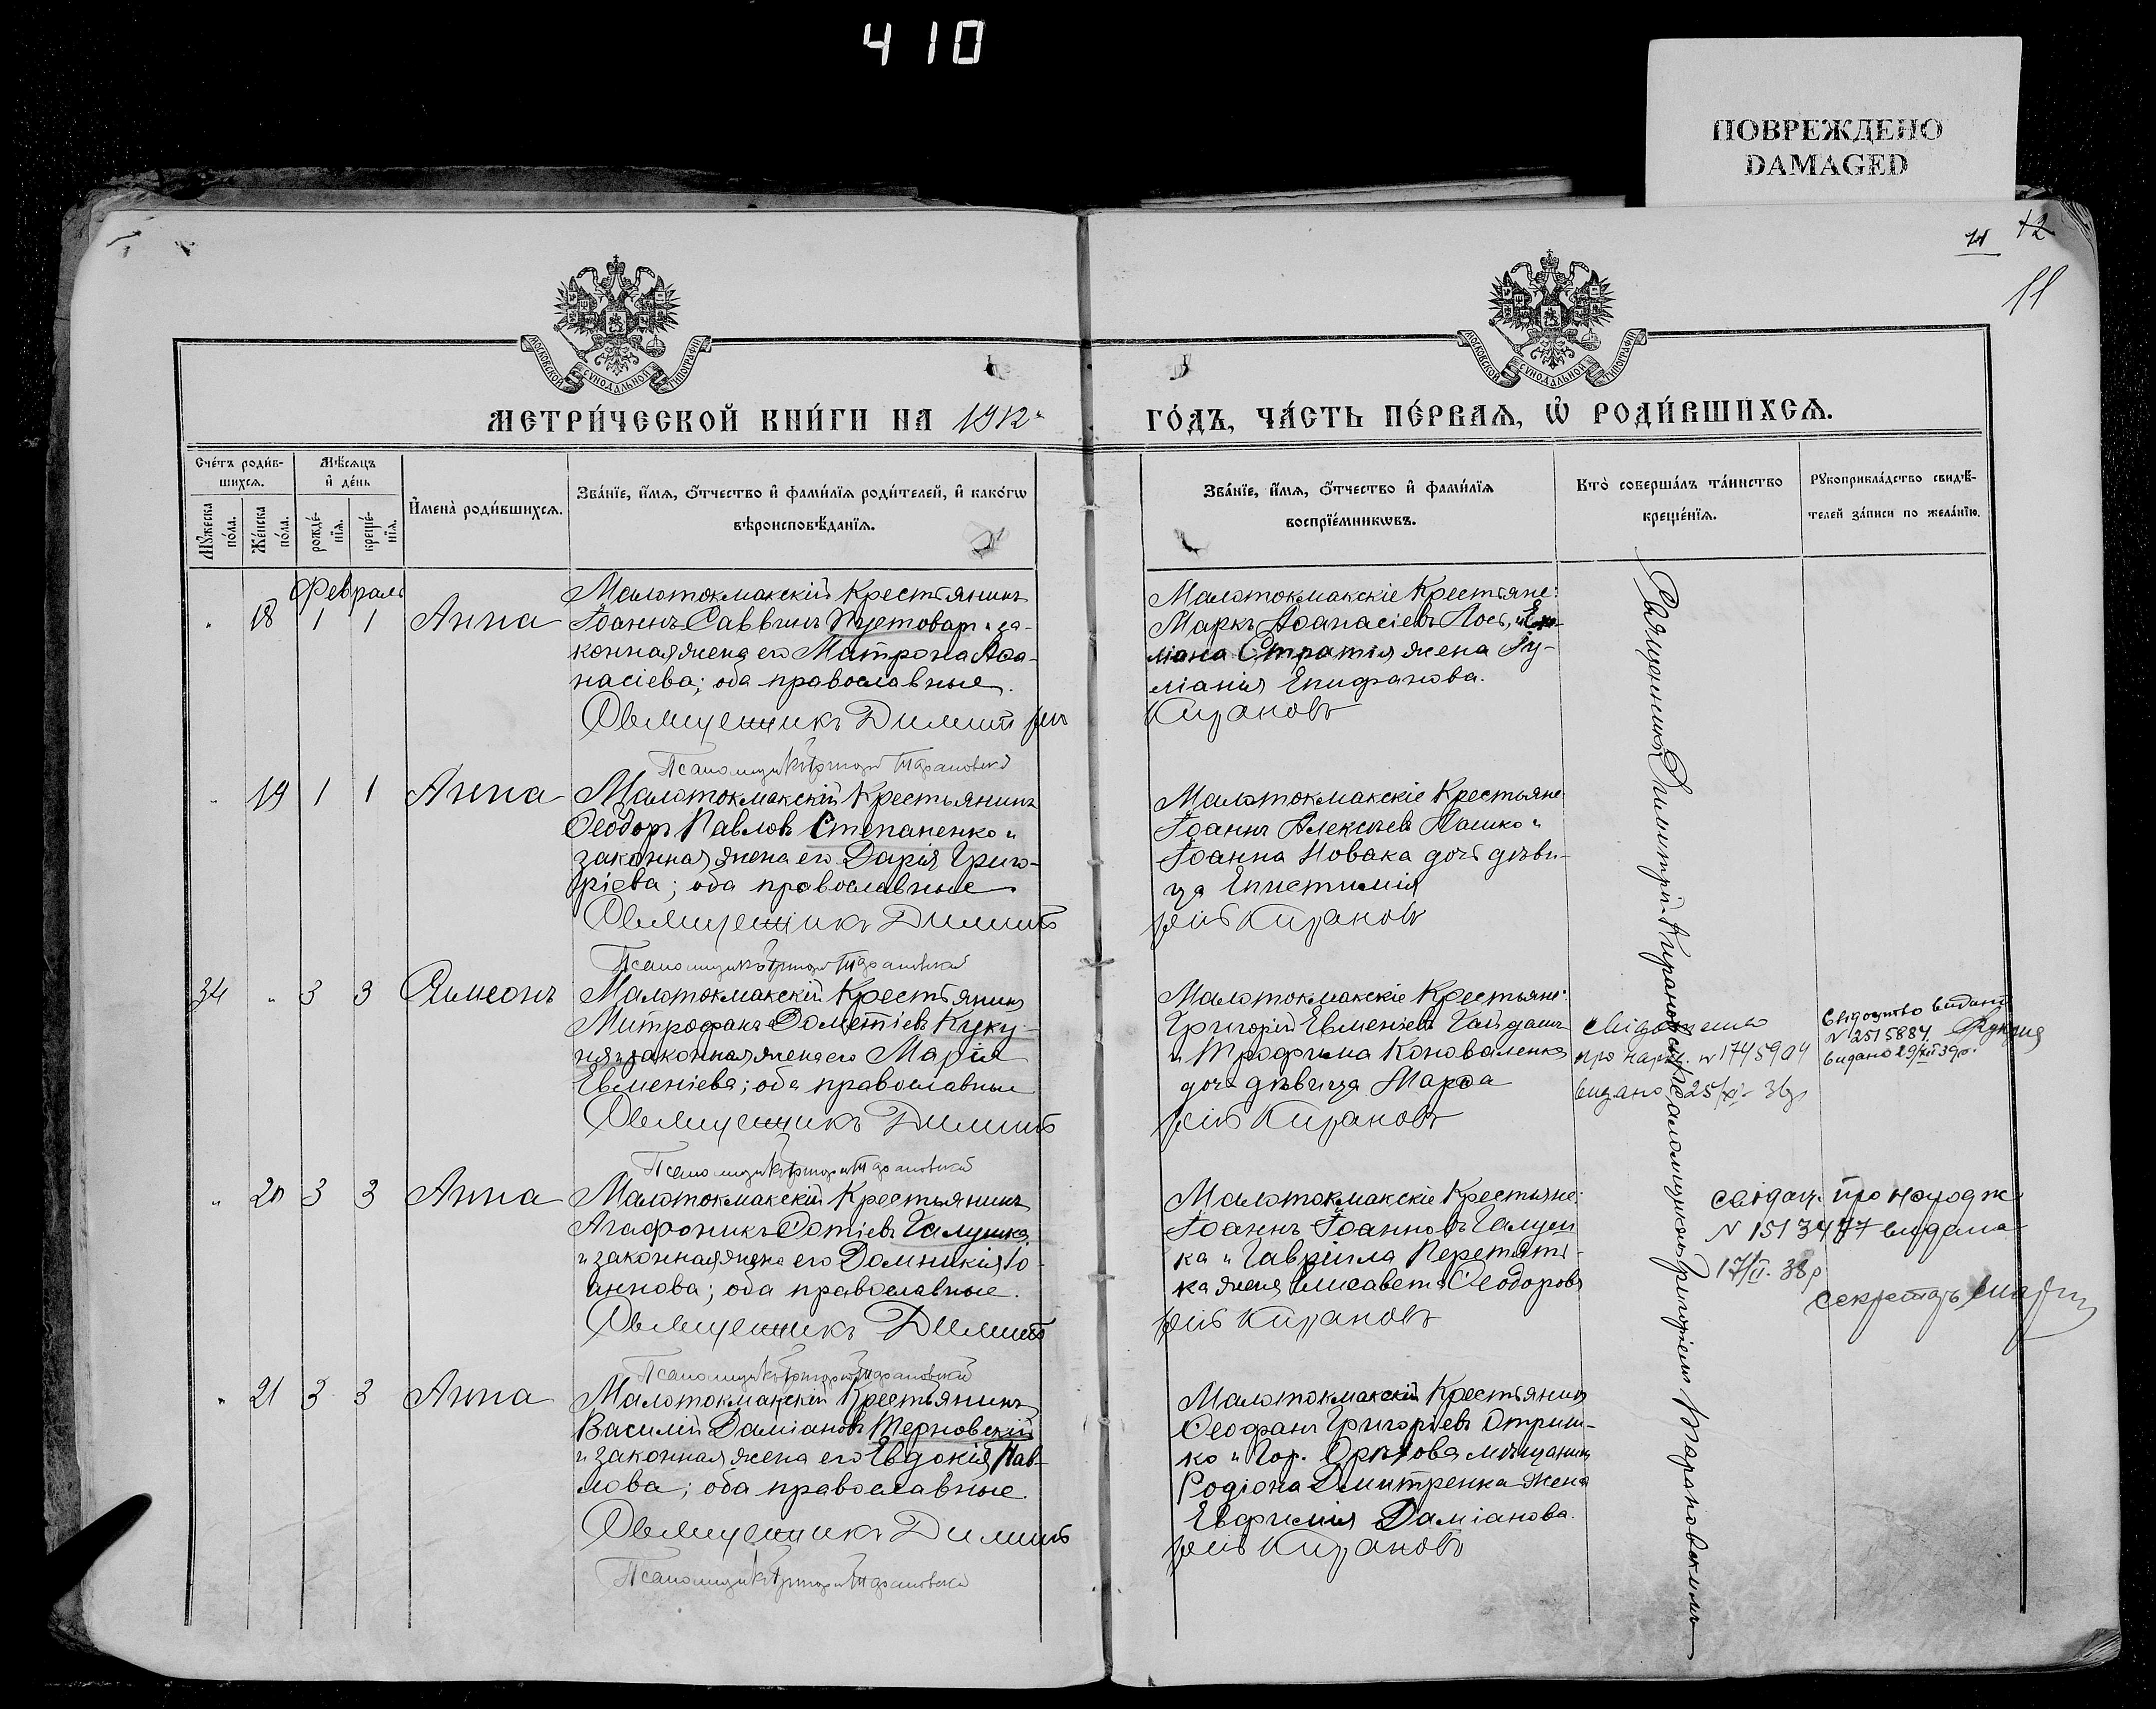 410
ПОВРЕЖДЕНО
DAMAGED
12
11
МОСКОВСКОЙ СѴНОДАЛЬНОЙ ТИПОГРАФІИ
МОСКОВСКОЙ СѴНОДАЛЬНОЙ ТИПОГРАФІИ
МЕТРИ́ЧЕСКОЙ КНИ́ГИ НА 1912
ГО́ДЪ, ЧА́СТЬ ПЕ́РВАѦ, Ѡ҆ РОДИ́ВШИХСѦ.
Сче́тъ роди́в-
шихсѧ.
Мѣ́сѧцъ
и҆ де́нь
Мꙋ́жеска по́ла.
Же́нска по́ла.
рожде́-нїѧ.
креще́-нїѧ.
И҆мена̀ роди́вшихсѧ.
Зва́нїе, и҆́мѧ, ѻ҆́тчество и҆ фами́лїѧ роди́телей, и҆ како́гѡ
вѣроисповѣ́данїѧ.
Зва́нїе, и҆́мѧ, ѻ҆́тчество и҆ фами́лїѧ
воспрїе́мникѡвъ.
Кто̀ соверша́лъ та́инство
креще́нїѧ.
Рꙋкоприкла́дство свидѣ́-
телей за́писи по жела́нїю.
Февраль
" 18 1 1 Анна
Малотокмакскій Крестьянинъ
Іоаннъ Саввинъ Пустовар и за-
конная жена его Матрона Аѳа-
насіева; оба православные.
Священникъ Димит рій
Псаломщикъ Григорій Тарановскій
Малотокмакскіе Крестьяне:
Маркъ Аѳанасіевъ Лось, и
Стратія жена Іу-
ліанія Епифанова.
Кирановъ
" 19 1 1 Анна
Малотокмакскій Крестьянинъ
Ѳеодоръ Павловъ Степаненко и
законная жена его Дарія Григо-
ріева; оба православные
Священникъ Димит
Псаломщикъ Григорій Тарановскій
Малотокмакскіе Крестьяне
Іоаннъ Алексѣевъ Пашко и
Іоанна Новака дочь дѣви-
ца Епистимія
рій Кирановъ
34 " 3 3 Симеонъ
Малотокмакскій Крестьянинъ
Митрофанъ Дометіевъ Куку-
ня и законная жена его Марія
Евменіева; оба православные
Священникъ Димит
Псаломщикъ Григорій Тарановскій
Малотокмакскіе Крестьяне:
Григорій Евменіевъ Гайдашъ
и Трофима Коноваленка
дочь дѣвица Марѳа
рій Кирановъ
про нар. N 1745904
видано 25/XI- 36р
Свідоцтво видано
N 2515884.
видано 29/XII 39р.
" 20 3 3 Анна
Малотокмакскій Крестьянинъ
Агаѳоникъ Фотіевъ Галушка
и законная жена его Домникія Іо-
аннова; оба православные.
Священникъ Димит
Псаломщикъ Григорій Тарановскій
Малотокмакскіе Крестьяне:
Іоаннъ Іоанновъ Галуш
ка и Гавріила Перетять-
ка жена Елисавета Ѳеодоровa
рій Кирановъ
Свідоц. про народж
N 1513477 видана
17/II. 38р
секретарь
" 21 3 3 Анна
Малотокмакскій Крестьянинъ
Василій Даміановъ Терновскій
и законная жена его Евдокія Пав-
лова; оба православные.
Священникъ Димит
Псаломщикъ Григорій Тарановскій
Малотокмакскій Крестьянинъ
Ѳеофанъ Григоріевъ Отриш-
ко и Гор. Орѣхова мѣщанина
Родіона Дмитренка жена
Евфимія Даміанова.
рій Кирановъ
Священникъ Димитрій Кирановъ съ псаломщикомъ Григоріемъ Тарановскимъ